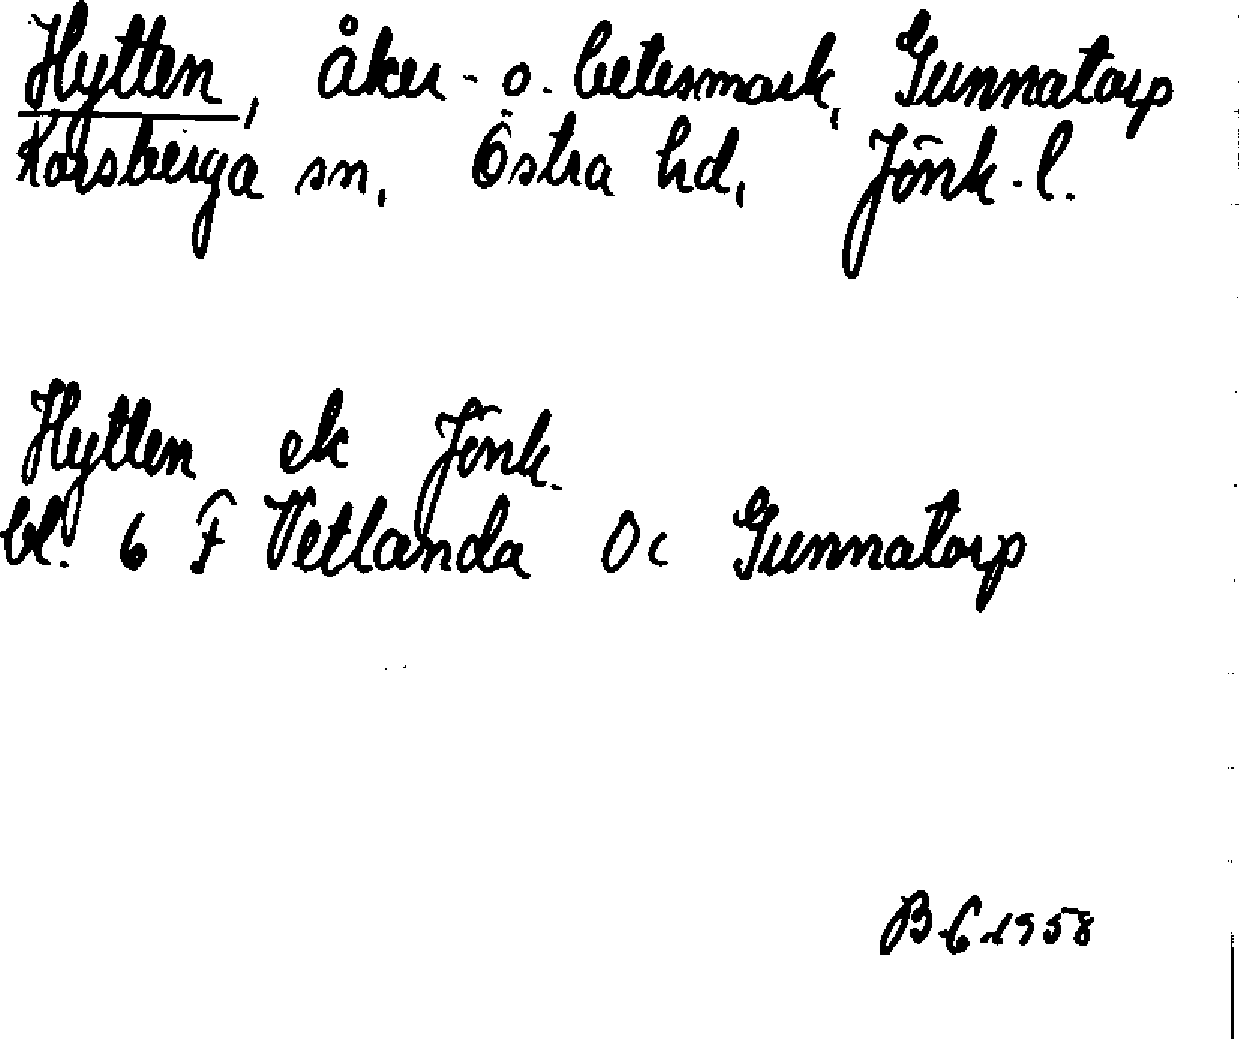 Hytten, åker- o. betesmark, Gunnatorp
Korsberga sn, Östra hd, Jönk. l.
Hytten ek Jönk.
bl. 6 F Vetlanda 0c Gunnatorp
B G 1958